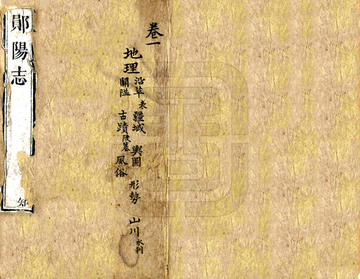 卷一
地理 沿革表 疆域 輿圖 形勢 山川水利
關隘 古蹟陵墓 風俗
鄖陽志